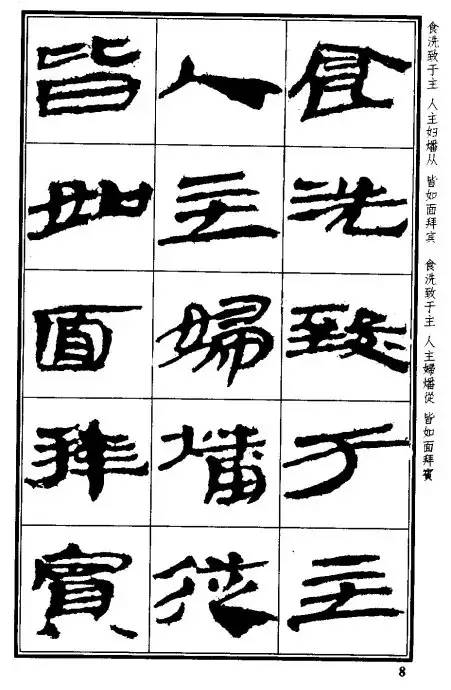 食洗致于主
人主婦燔從
皆如面拜賓
食洗致于主 人主妇燔从 皆如面拜宾 食洗致于主 人主婦燔從 皆如面拜賓
8